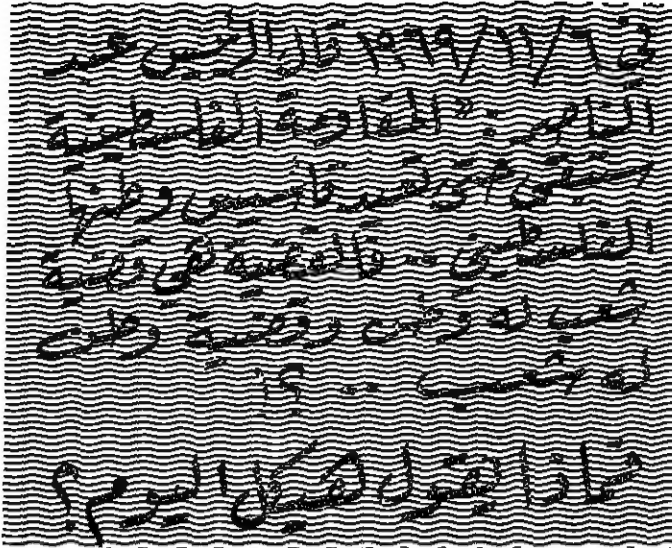 في ٦/١١/١٩٦٩ قال الرئيس عبد
الناصر : " المقاومة الفلسطينية
ستبقى حتى تسيد تأسيس وطنها
الفلسطيني .. فالقضية هي قضية
شعب له وطن وقضية وطن
له شعب .. ؟!
فماذا تقول لهيكل اليوم ؟